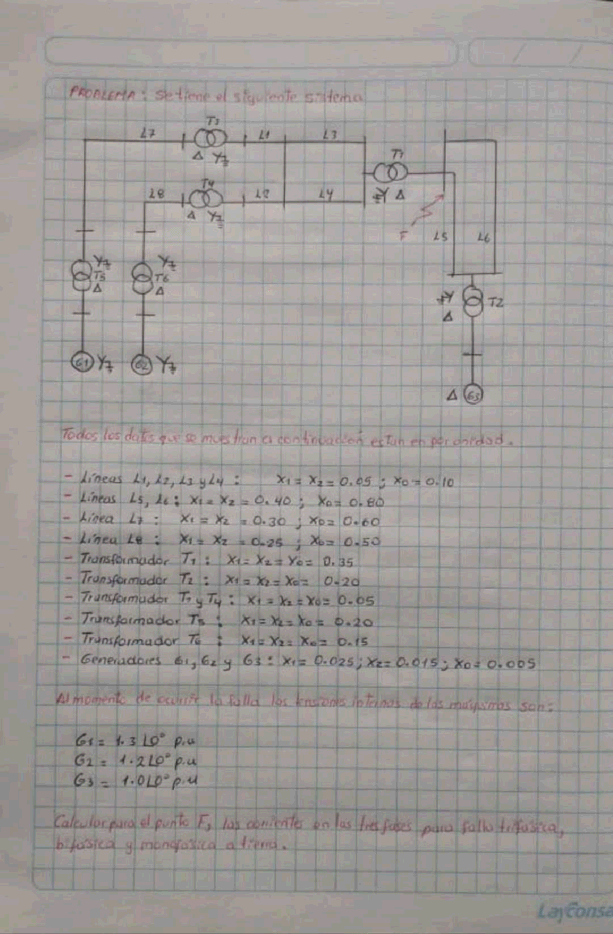 PROBLEMA: Se tiene el siguiente sistema
L7 T3 L1 L3 T1
Δ Y
L8 T4 L2 L4 Y Δ
Δ Y
F L5 L6
Y T5 Y T6
Δ Δ
Y T2
Δ
G1 Y G2 Y
Δ G3
Todos los datos que se muestran a continuación están en por unidad.
- Líneas L1, L2, L3 y L4 : X1 = X2 = 0.05 ; X0 = 0.10
- Líneas L5, L6 : X1 = X2 = 0.40 ; X0 = 0.80
- Línea L7 : X1 = X2 = 0.30 ; X0 = 0.60
- Línea L8 : X1 = X2 = 0.25 ; X0 = 0.50
- Transformador : X1 = X2 = X0 = 0.35
- Transformador T2 : X1 = X2 = X0 = 0.20
- Transformador y T4 : X1 = X2 = X0 = 0.05
- Transformador T5 : X1 = X2 = X0 = 0.20
- Transformador T6 : X1 = X2 = X0 = 0.15
- Generadores G1, G2 y G3 : X1 = 0.025 ; X2 = 0.015 ; X0 = 0.005
Al momento de ocurrir la falla las tensiones internas de las maquinas son:
G1 = 1.3 ∠0° p.u
G2 = 1.2 ∠0° p.u
G3 = 1.0 ∠0° p.u
Calcular para el punto F, las corrientes en las tres fases para falla trifásica,
bifásica y monofásica a tierra.
Layconsa